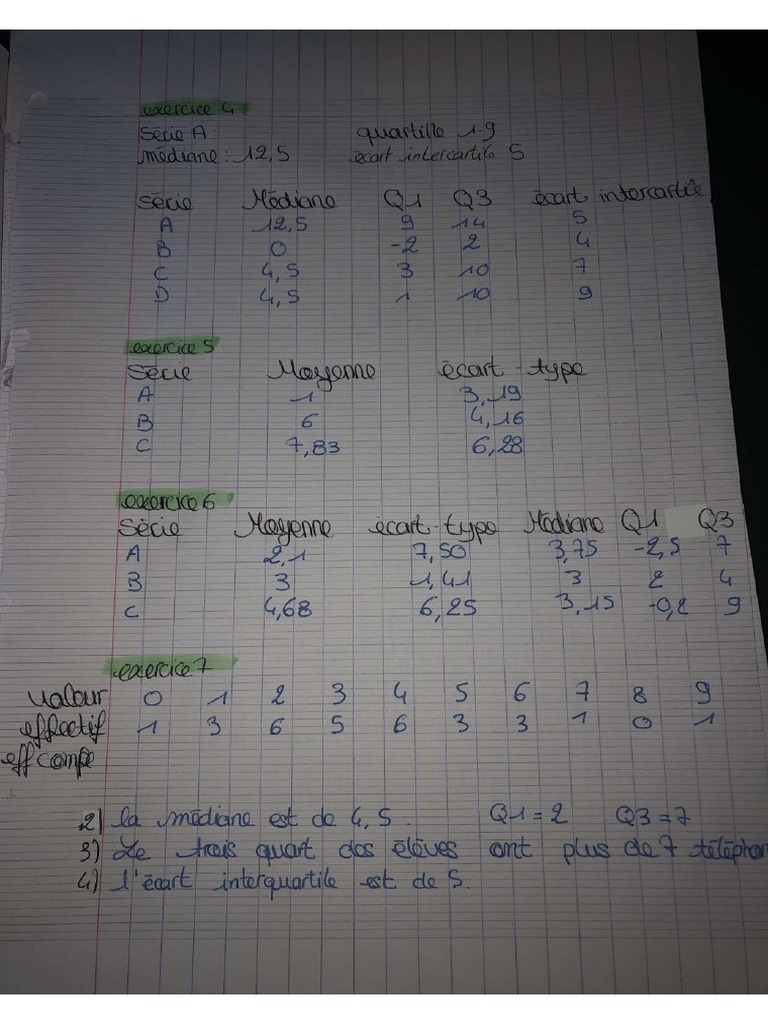 exercice 4
Série A: quartille 1.9
médiane: 12,5 écart intercartile 5
Série Médiane Q1 Q3 écart intercartile
A 12,5 9 14 5
B 0 -2 2 4
C 4,5 3 10 7
D 4,5 1 10 9
exercice 5
Série Moyenne écart-type
A 1 3,19
B 6 4,16
C 7,83 6,28
exercice 6
Série Moyenne écart-type Médiane Q1 Q3
A 2,1 7,50 3,75 -2,5 7
B 3 1,41 3 2 4
C 4,68 6,25 3,15 -0,2 9
exercice 7
valeur 0 1 2 3 4 5 6 7 8 9
effectif 1 3 6 5 6 3 3 1 0 1
eff compe
2) la médiane est de 4,5. Q1=2 Q3=7
3) Le trois quart des élèves ont plus de 7 télephon
4) l'écart interquartile est de 5.